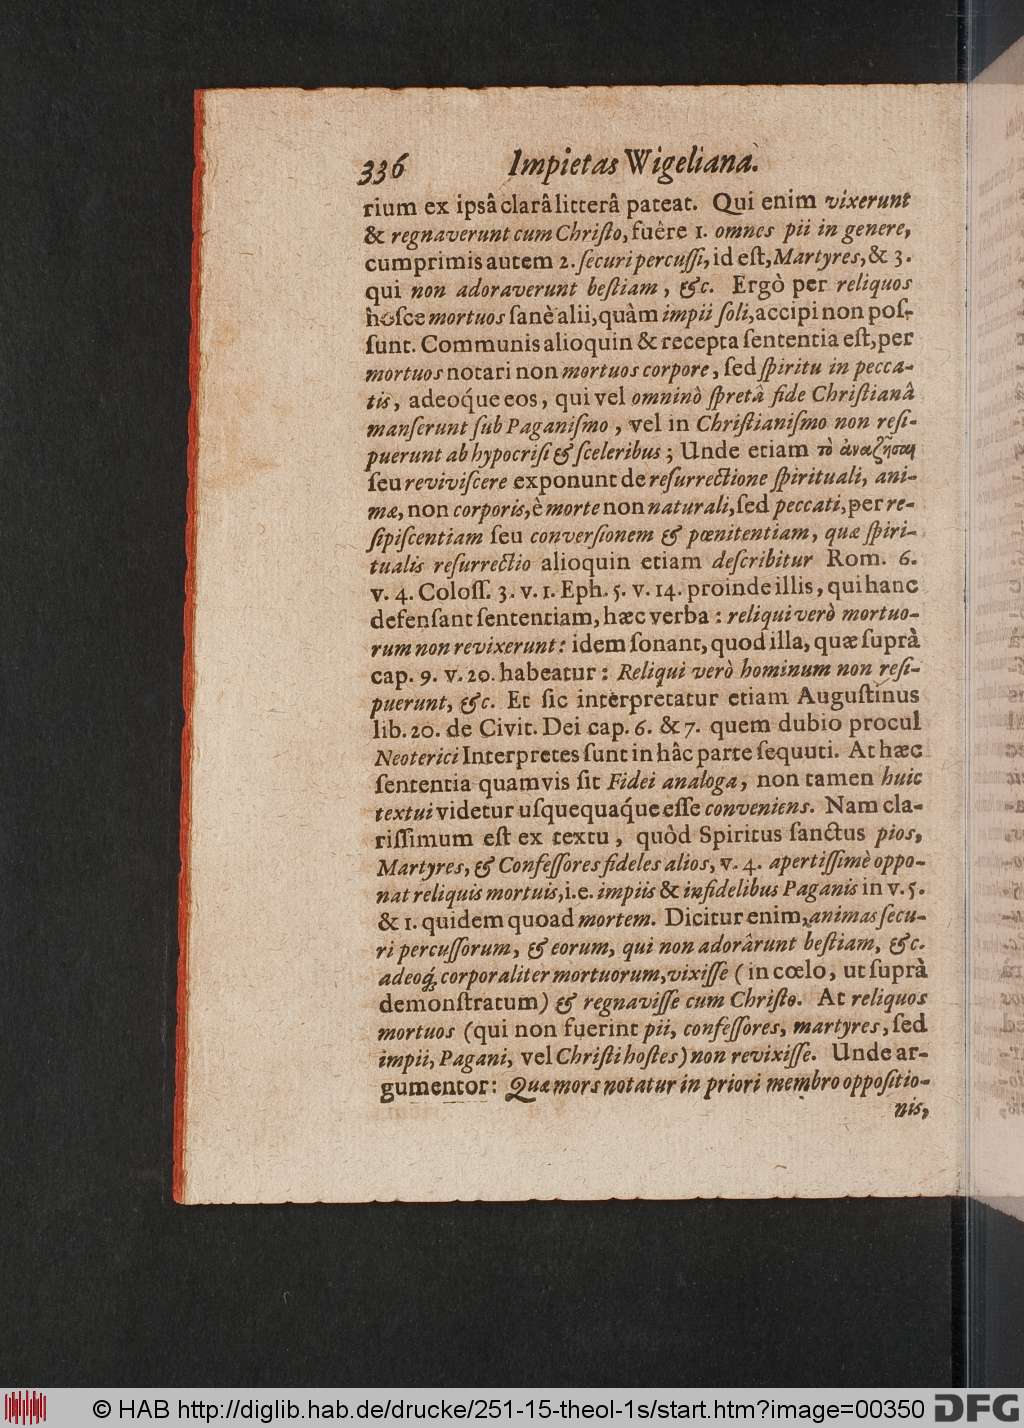 336 Impietas Wigeliana.
rium ex ipsâ clarâ litterâ pateat. Qui enim vixerunt
& regnaverunt cum Christo, fuêre 1. omnes pii in genere,
cumprimis autem 2. securi percussi, id est, Martyres, & 3.
qui non adoraverunt bestiam, &c. Ergò per reliquos
hosce mortuos sanè alii, quàm impii soli, accipi non pos-
sunt. Communis alioquin & recepta sententia est, per
mortuos notari non mortuos corpore, sed spiritu in pecca-
tis, adeóque eos, qui vel omninò spretâ fide Christianâ
manserunt sub Paganismo, vel in Christianismo non resi-
puerunt ab hypocrisi & sceleribus; Unde etiam τὸ ἀναζῆσαι
seu reviviscere exponunt de resurrectione spirituali, ani-
mæ, non corporis, è morte non naturali, sed peccati, per re-
sipiscentiam seu conversionem & pœnitentiam, quæ spiri-
tualis resurrectio alioquin etiam describitur Rom. 6.
v. 4. Coloss. 3. v. 1. Eph. 5. v. 14. proinde illis, qui hanc
defensant sententiam, hæc verba: reliqui verò mortuo-
rum non revixerunt: idem sonant, quod illa, quæ suprà
cap. 9. v. 20. habeatur: Reliqui verò hominum non resi-
puerunt, &c. Et sic interpretatur etiam Augustinus
lib. 20. de Civit. Dei cap. 6. & 7. quem dubio procul
Neoterici Interpretes sunt in hâc parte sequuti. At hæc
sententia quamvis sit Fidei analoga, non tamen huic
textui videtur usquequaque esse conveniens. Nam cla-
rissimum est ex textu, quòd Spiritus sanctus pios,
Martyres, & Confessores fideles alios, v. 4. apertissimè oppo-
nat reliquis mortuis, i.e. impiis & infidelibus Paganis in v. 5.
& 1. quidem quoad mortem. Dicitur enim, animas secu-
ri percussorum, & eorum, qui non adorârunt bestiam, &c.
adeoq́; corporaliter mortuorum, vixisse (in cœlo, ut suprà
demonstratum) & regnavisse cum Christo. At reliquos
mortuos (qui non fuerint pii, confessores, martyres, sed
impii, Pagani, vel Christi hostes) non revixisse. Unde ar-
gumentor: Quæ mors notatur in priori membro oppositio-
nis,
© HAB http://diglib.hab.de/drucke/251-15-theol-1s/start.htm?image=00350
DFG